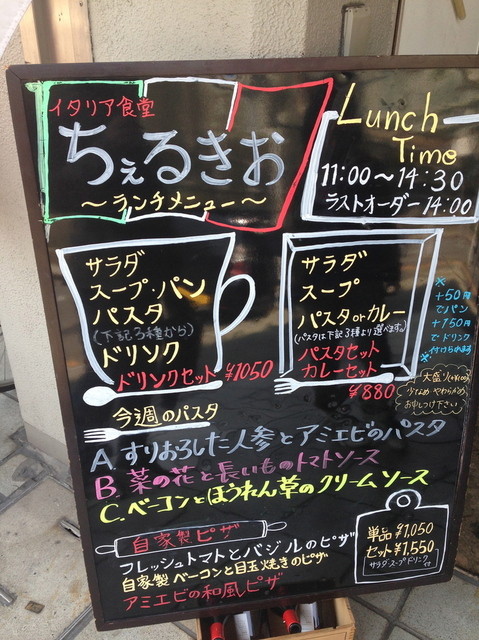 イタリア食堂
ちぇるきお
～ランチメニュー～
Lunch
Time
11:00～14:30
ラストオーダー 14:00
サラダ
スープ・パン
パスタ
(下記3種から)
ドリンク
ドリンクセット ¥1050
サラダ
スープ
パスタorカレー
(パスタは下記3種より選べます。)
パスタセット
カレーセット
¥880
※
+50円
でパン
+150円
でドリンク
付けられます
大盛
少なめ やわらかめ
お申しつけ下さい
今週のパスタ
A. すりおろした人参とアミエビのパスタ
B. 菜の花と長いものトマトソース
C. ベーコンとほうれん草のクリームソース
自家製ピザ
フレッシュトマトとバジルのピザ
自家製ベーコンと目玉焼きのピザ
アミエビの和風ピザ
単品 ¥1,050
セット ¥1,550
サラダ・スープ・ドリンク付